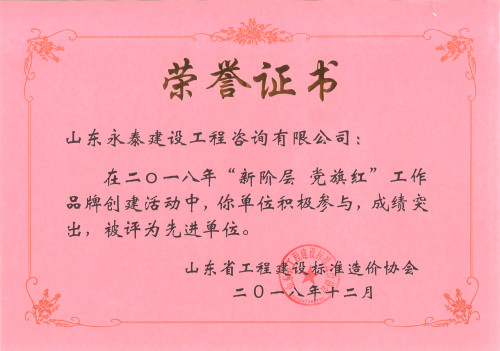 荣誉证书
山东永泰建设工程咨询有限公司：
在二〇一八年“新阶层 党旗红”工作
品牌创建活动中，你单位积极参与，成绩突
出，被评为先进单位。
山东省工程建设标准造价协会
二〇一八年十二月